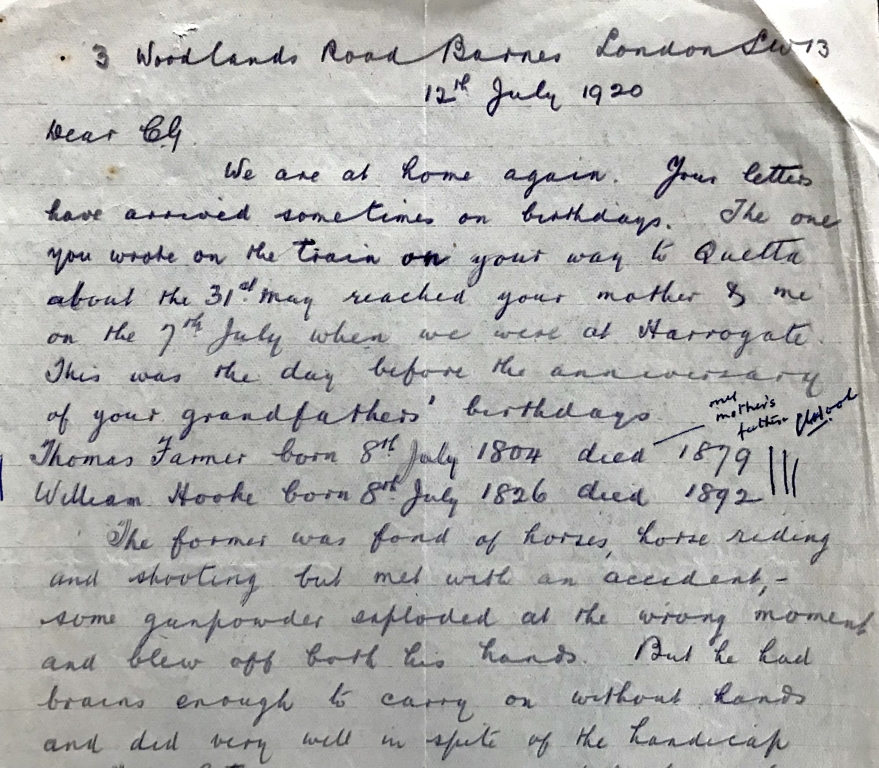 3 Woodlands Road Barnes London SW13
12th July 1920
Dear CG
We are at home again. Your letters
have arrived sometimes on birthdays. The one
you wrote on the train on your way to Quetta
about the 31st May reached your mother & me
on the 7th July when we were at Harrogate.
This was the day before the anniversary
of your grandfathers' birthdays
mother's
father
Thomas Farmer born 8th July 1804 died 1879
William Hooke born 8th July 1826 died 1892
The former was fond of horses, horse riding
and shooting but met with an accident, -
some gunpowder exploded at the wrong moment
and blew off both his hands. But he had
brains enough to carry on without hands
and did very well in spite of the handicap